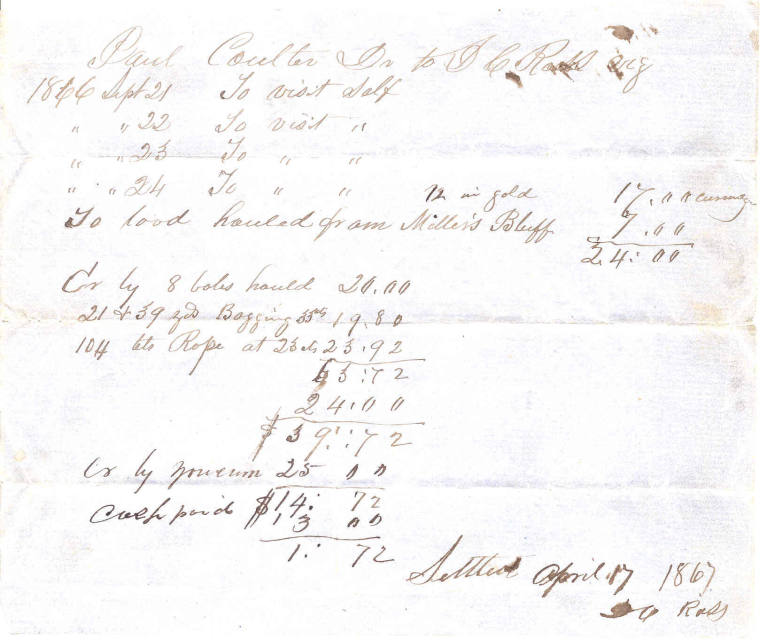 Paul Coulter Dr to J C Ross
1866 Sept 21 To visit Self
" " 22 To visit "
" " 23 To " "
" " 24 To " " 12 in gold 17.00 currency
To load hauled from Miller's Bluff 7.00
24:00
Cr by 8 bales hauld 20.00
21 & 39 yds Bagging 33cts 19.80
104 lbs Rope at 23cts 23.92
63:72
24:00
$ 39:72
Cr by 25 00
$14: 72
cash paid 13 00
1: 72
Settled April 17 1867
J C Ross